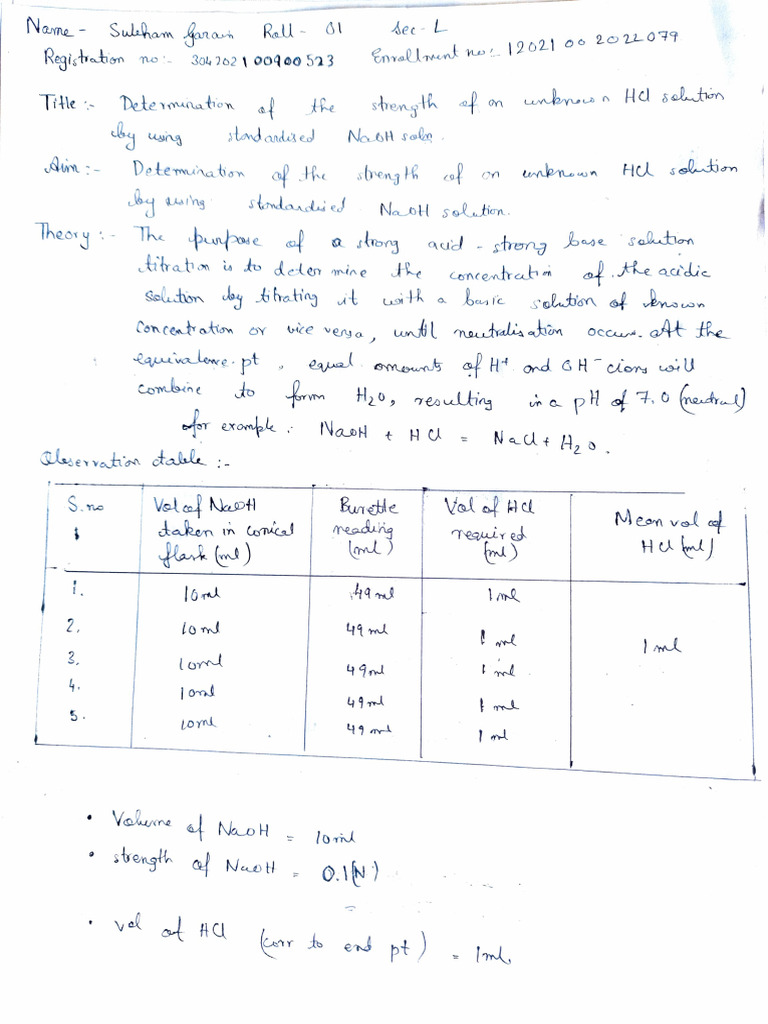 Name - Subham Garain Roll - 01 Sec - L
Registration no:- 304202100900523 Enrollment no:- 12021002022079
Title :- Determination of the strength of an unknown HCl solution
by using standardised NaOH soln.
Aim :- Determination of the strength of an unknown HCl solution
by using standardised NaOH solution.
Theory :- The purpose of a strong acid - strong base solution
titration is to determine the concentration of the acidic
solution by titrating it with a basic solution of known
concentration or vice versa, until neutralisation occurs. At the
equivalence pt, equal amounts of H+ and OH- ions will
combine to form H2O, resulting in a pH of 7.0 (neutral)
for example : NaOH + HCl = NaCl + H2O.
Observation table :-
S.no Vol of NaOH taken in conical flask (ml) Burette reading (ml) Vol of HCl required (ml) Mean vol of HCl (ml)
1. 10ml 49ml 1ml
2. 10ml 49ml 1ml 1ml
3. 10ml 49ml 1ml
4. 10ml 49ml 1ml
5. 10ml 49ml 1ml
• Volume of NaOH = 10ml
• strength of NaOH = 0.1(N)
• vol of HCl (corr to end pt) = 1ml.